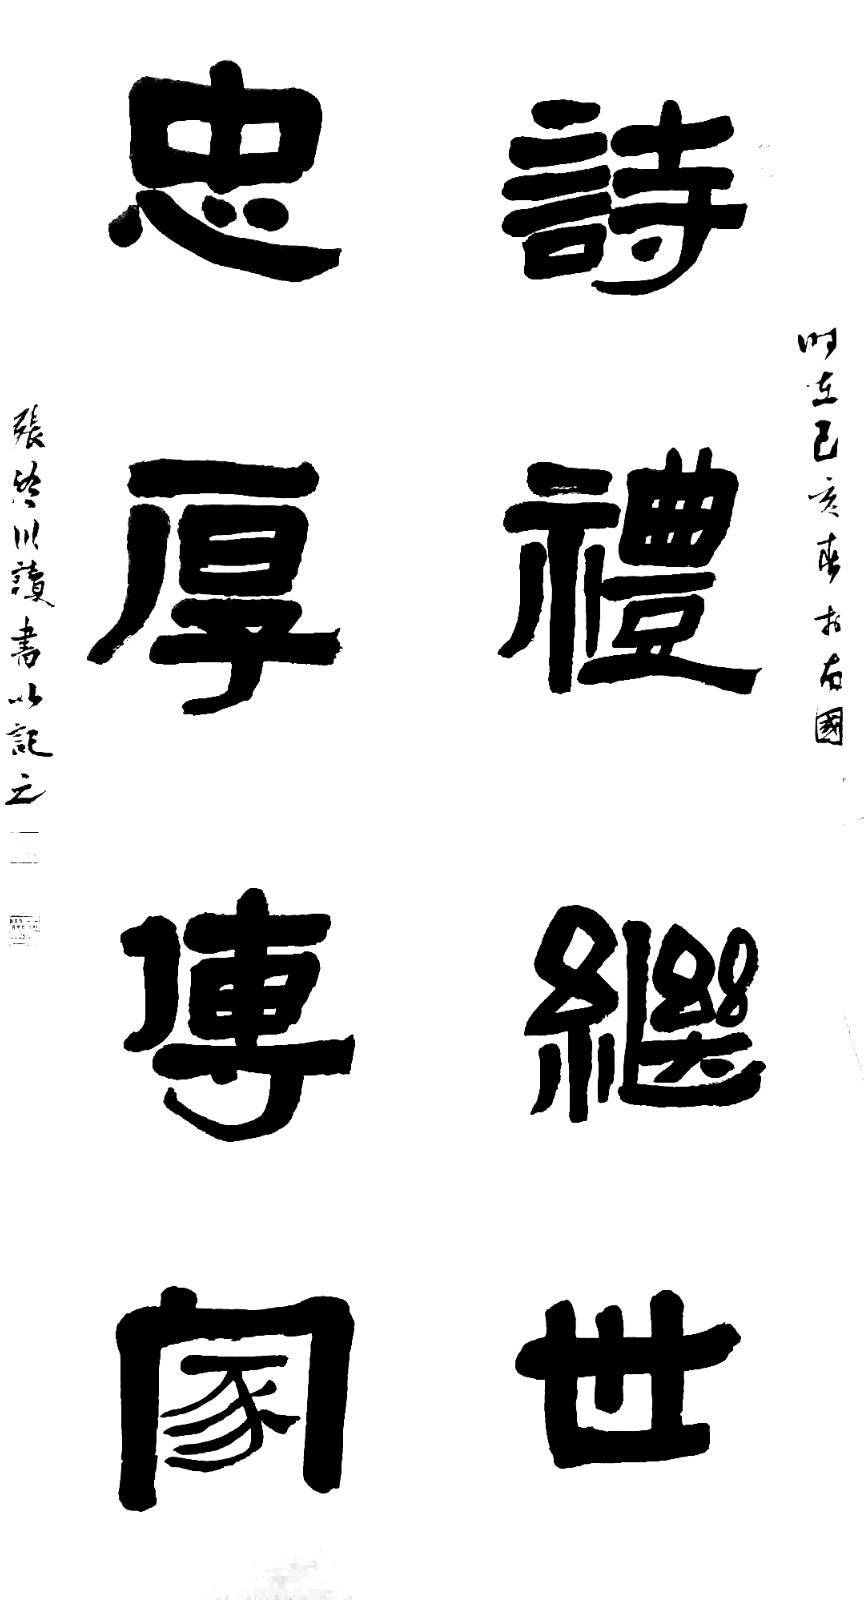 時在己亥春於古國
詩禮繼世
忠厚傳家
張 川讀書以記之